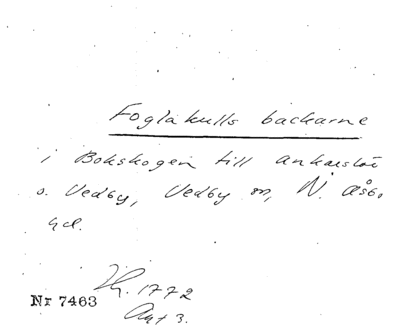 Foglakulls backarne
i Bokskogen till Ankarslöt
o. Vedby, Vedby sn, N. Åsbo
hd.
1772
Nr 7463
Akt 3.